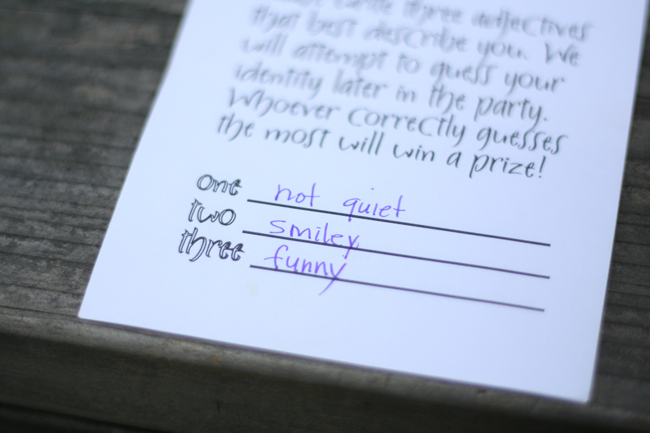 write three adjectives
that best describe you. We
will attempt to guess your
identity later in the party.
Whoever correctly guesses
the most will win a prize!
one not quiet
two smiley
three funny